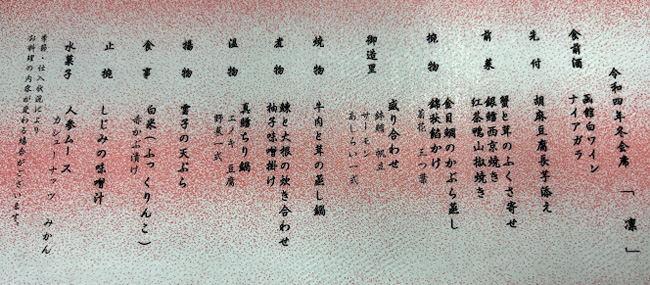 令和四年冬会席 「凛」
食前酒 函館白ワイン
ナイアガラ
先付 胡麻豆腐長芋添え
前菜 蟹と茸のふくさ寄せ
銀鱈西京焼き
紅茶鴨山椒焼き
椀物 金目鯛のかぶら蒸し
錦秋餡かけ
菊花 三つ葉
御造里 盛り合わせ
鮪 帆立
サーモン
あしらい一式
焼物 牛肉と茸の蒸し鍋
煮物 鰊と大根の炊き合わせ
柚子味噌掛け
温物 真鱈ちり鍋
エノキ 豆腐
野菜一式
揚物 雲子の天ぷら
食事 白米(ふっくりんこ)
赤かぶ漬け
止椀 しじみの味噌汁
水菓子 人参ムース
カシューナッツ みかん
季節・仕入状況により
お料理の内容が変わる場合がございます。